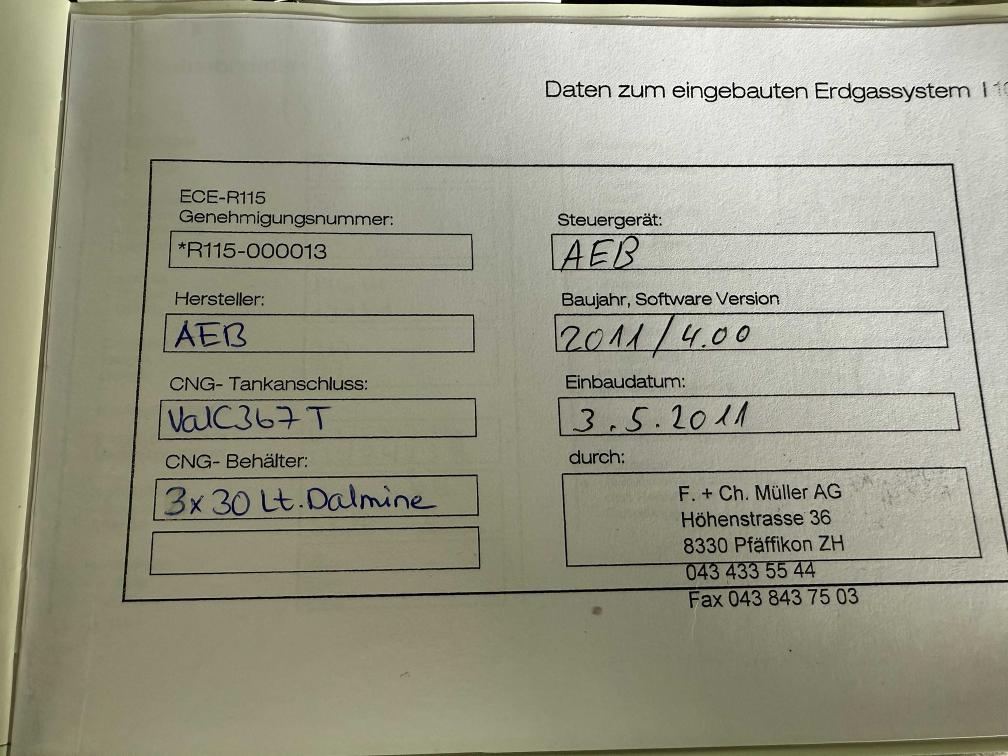 Daten zum eingebauten Erdgassystem I
ECE-R115
Genehmigungsnummer:
*R115-000013
Hersteller:
AEB
CNG- Tankanschluss:
ValC367 T
CNG- Behälter:
3x 30 Lt. Dalmine
Steuergerät:
AEB
Baujahr, Software Version
2011 / 4.00
Einbaudatum:
3.5.2011
durch:
F. + Ch. Müller AG
Höhenstrasse 36
8330 Pfäffikon ZH
043 433 55 44
Fax 043 843 75 03